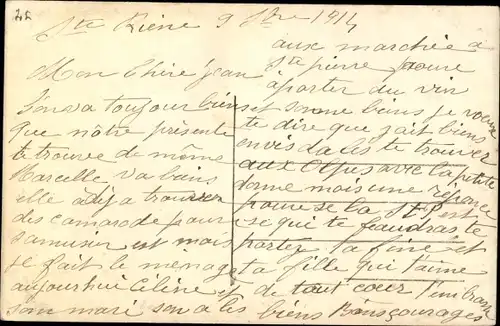 22
Ste Rième 9 Sbre 1914
Mon Chère jean
Son va toujour bien
que nôtre présente
te trouve de môme
Marcelle va biens
elle a déja trouver
des camarode pour
samuser et mois
je fait le ménage
aujourhui Céline et
son mari son a les
aux marchée a
St pierre pour
aporter du vin
et sonne biens je veux
te dire que jait biens
envis da les te trouver
aux Olpes avec la petite
donne mois une réponce
pour se la
se qui te faudras te
porter. ta fine et
ta fille qui t'aime
de tout coeur t'embrasse
biens Bonscourages